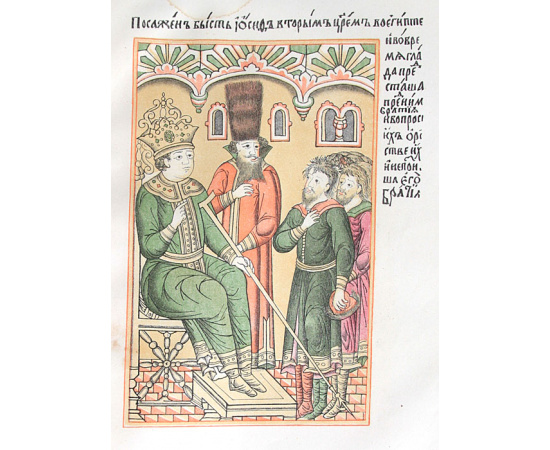 Посаженъ бысть іѡсифъ вторымъ црёмъ во египтѣ
и во вре
мя гла
да пре
сташа
пре ним
братия
и вопрос
ихъ
стве ихъ
и не
ша его
братия